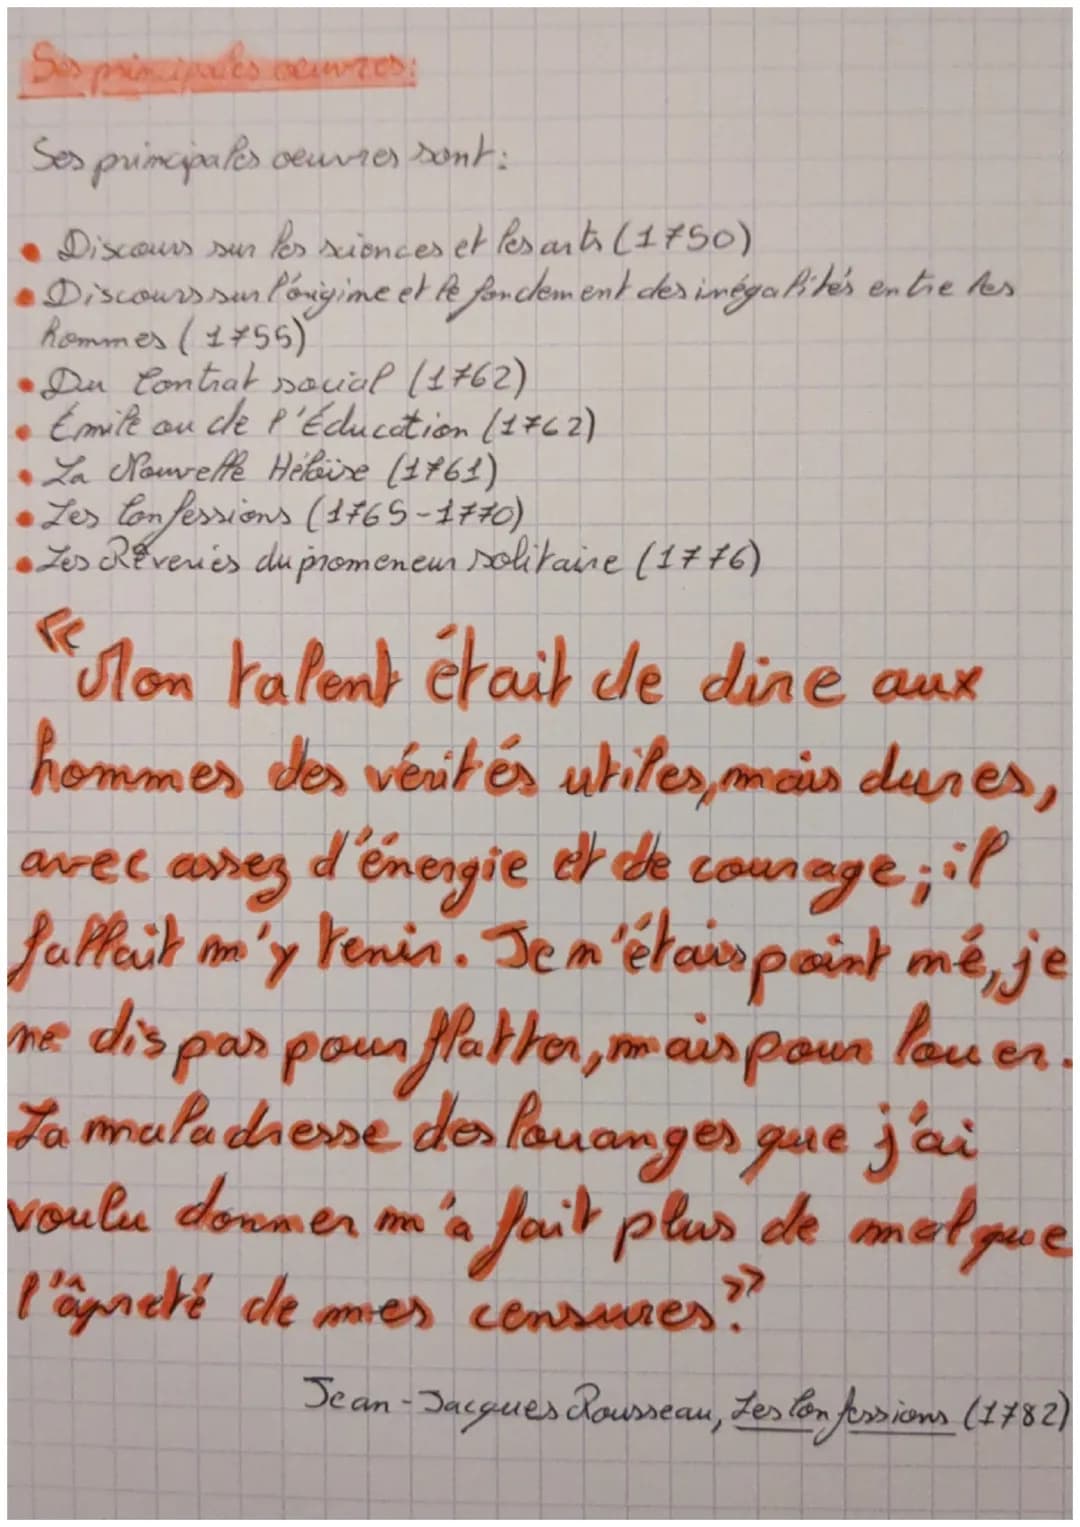 Ses principales oeuvres:
Ses principales oeuvres sont:
• Discours sur les sciences et les arts (1750)
• Discours sur l'origine et le fondement des inégalités entre les
hommes (1755)
• Du Contrat social (1762)
• Émile ou de l'Éducation (1762)
• La Nouvelle Héloïse (1761)
• Les Confessions (1765-1770)
• Les Rêveries du promeneur solitaire (1776)
«Mon talent était de dire aux
hommes des vérités utiles, mais dures,
avec assez d'énergie et de courage; il
fallait m'y tenir. Je n'étais point né, je
ne dis pas pour flatter, mais pour louer.
La maladresse des louanges que j'ai
voulu donner m'a fait plus de mal que
l'âpreté de mes censures.»
Jean-Jacques Rousseau, Les Confessions (1782)